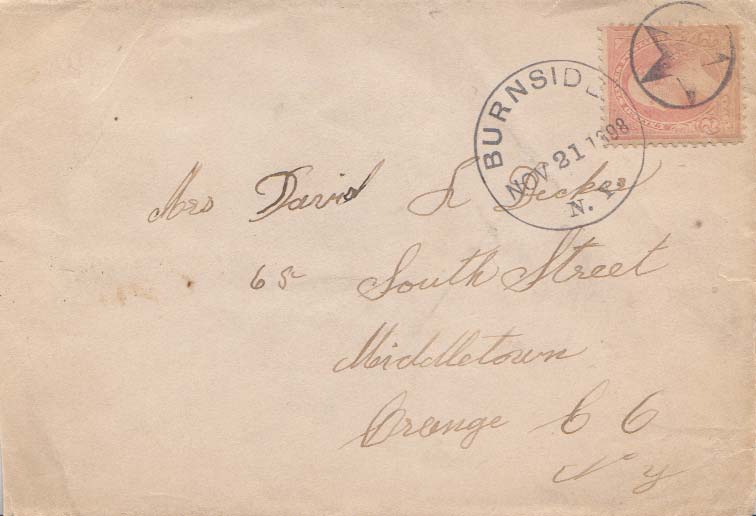 BURNSIDE
NOV 21 1898
N. Y.
Mrs David L Decker
65 South Street
Middletown
Orange C C
N Y